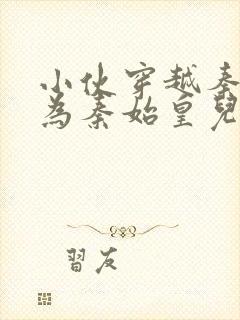 小伙穿越秦
為秦始皇兒
習友